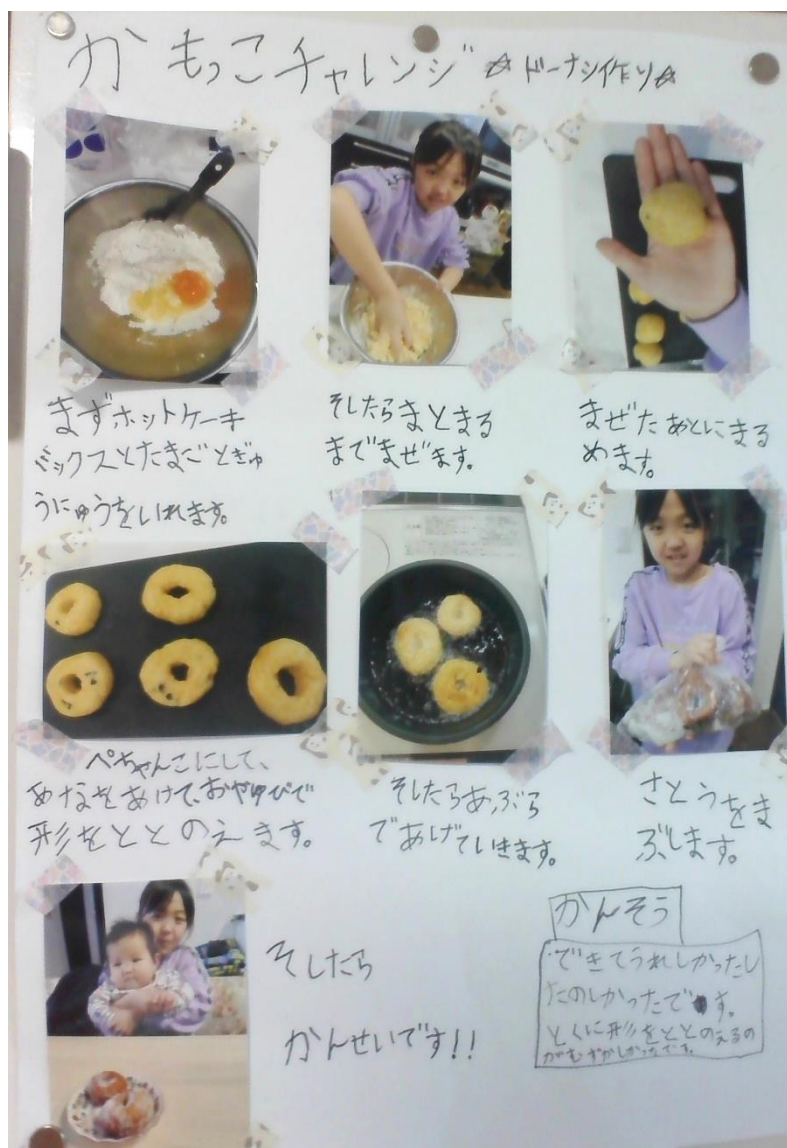 かもっこチャレンジ ☆ドーナツ作り☆
まずホットケーキ
ミックスとたまごとぎゅ
うにゅうをいれます。
そしたらまとまる
までまぜます。
まぜたあとにまる
めます。
ぺちゃんこにして、
あなをあけて、おやゆびで
形をととのえます。
そしたらあぶら
であげていきます。
さとうをま
ぶします。
そしたら
かんせいです!!
かんそう
・できてうれしかったし
たのしかったです。
とくに形をととのえるの
がむずかしかったです。